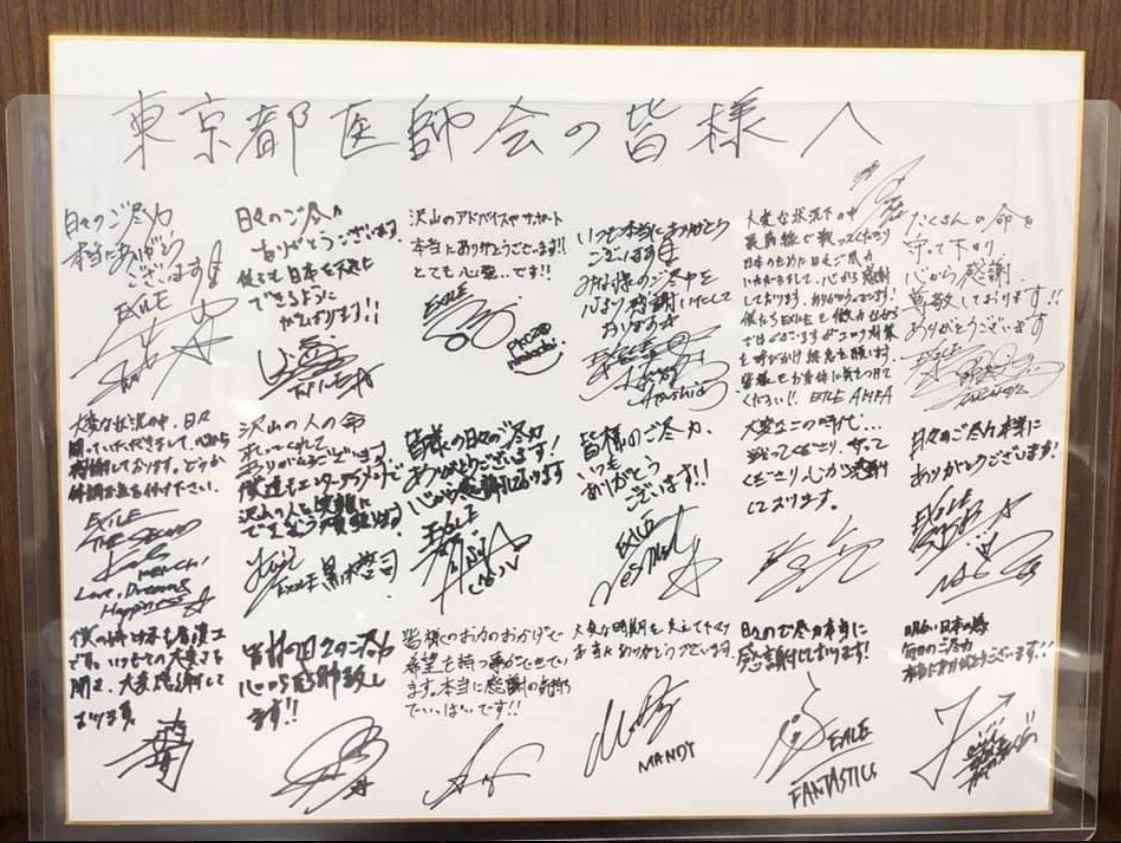 東京都医師会の皆様へ
日々のご尽力
本当にありがとう
ございます!!
EXILE
日々のご尽力
ありがとうございます。
僕らも日本を元気に
できるように
がんばります!!
沢山のアドバイスやサポート
本当にありがとうございます!!
とても心強いです!!
EXILE
いつも本当にありがとう
ございます!!
みな様のご尽力を
心より感謝いたして
おります☆
大変な状況下の中
最前線で戦ってくださり
日本のために日々ご尽力
いただきまして、心から感謝
しております。ありがとうございます!
僕たちEXILEも微力ながら
ではございますがコロナ対策
を呼びかけ終息を願います。
皆様もお身体に気をつけて
ください!! EXILE AKIRA
たくさんの命を
守って下さり
心から感謝
尊敬しております!!
ありがとうございます
EXILE
大変な状況の中、日々
闘っていただきまして、心から
感謝しております。どうか
体調お気を付け下さい。
EXILE
THE SECOND
KENCHI
Love, Dreams
Happiness
沢山の人の命
ありがとうございます。
僕達もエンターテイメントで
沢山の人を笑顔に
EXILE黒木啓司
皆様の日々のご尽力!
ありがとうございます!
心から感謝しております
EXILE
皆様のご尽力、
いつも
ありがとう
ございます!!
EXILE
NESMITH
大変なこの時代…
戦ってくださり、守って
くださり、心から感謝
しております。
日々のご尽力本当に
ありがとうございます!
EXILE
僕の姉と弟も看護士
です。いつもその大変さを
聞き、大変感謝して
おります。
皆様の日々のご尽力
心から感謝致し
ます!!
皆様のお力のおかげで
希望を持つ事ができてい
ます。本当に感謝の気持ち
でいっぱいです!!
大変な時期を支えて下さり
本当にありがとうございます。
MANDY
日々のご尽力本当に
感謝しております!
EXILE
FANTASTICS
明るい日本の為
毎日のご尽力
本当にありがとうございます!!